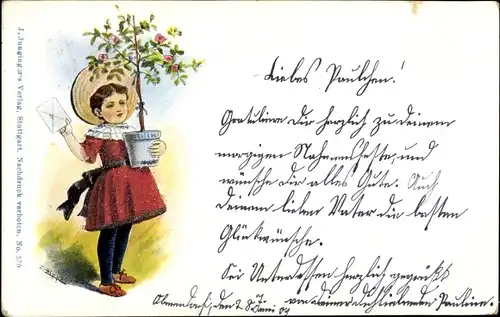 J. Junginger's Verlag, Stuttgart. Nachdruck verboten. No. 350
Liebes Paulchen!
Gratuliere Dir herzlich zu deinem
morgigen Nahmensfeste, und
wünsche dir alles Gute. Auch
deinem lieben Vater die besten
Glückwünsche.
Sei Unterdessen herzlich gegrüßt
von deiner dichliebenden Pauline.
den 28